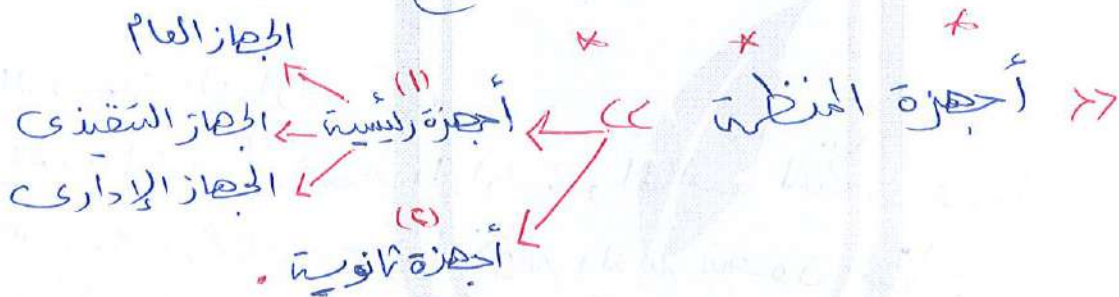 « أجهزة المنظمة »
(١) أجهزة رئيسية
الجهاز العام
الجهاز التنفيذى
الجهاز الإدارى
(٢) أجهزة ثانوية .